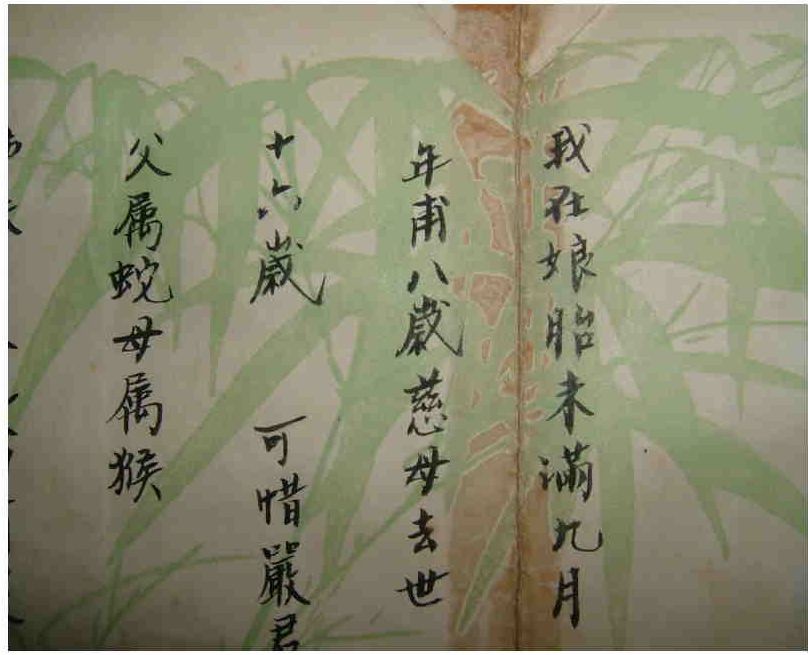 我在娘胎未滿九月
年甫八歲慈母去世
十六歲　可惜嚴君
父属蛇母属猴